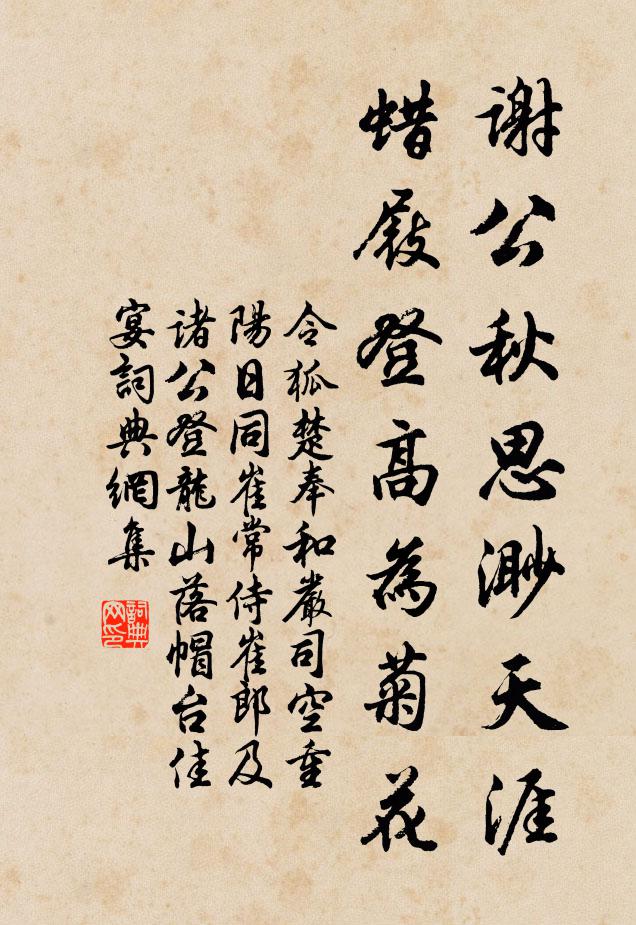 謝公秋思渺天涯
蜡屐登高為菊花
令狐楚奉和嚴司空重
陽日同崔常侍崔郎及
諸公登龍山落帽台佳
宴詞典網集
詞典网印